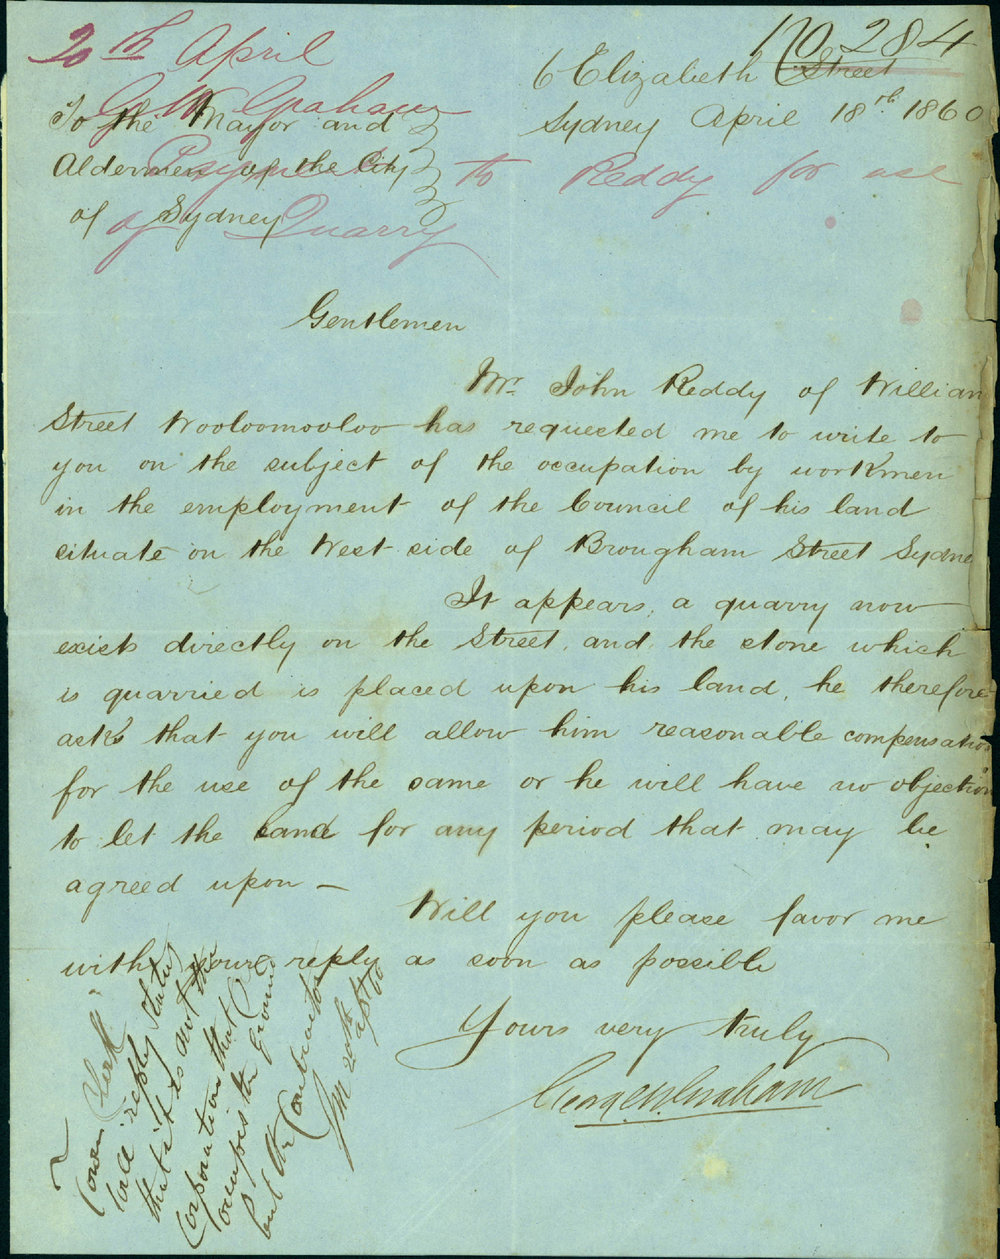 No 284
20th April
G W Graham
Payment to Reddy for use
of Quarry
6 Elizabeth Street
Sydney April 18th 1860
To the Mayor and
Aldermen of the City
of Sydney
Gentlemen
Mr. John Reddy of William
Street Wooloomooloo has requested me to write to
you on the subject of the occupation by workmen
in the employment of the Council of his land
situate on the West side of Brougham Street Sydney
It appears, a quarry now
exists directly on the Street, and, the stone which
is quarried is placed upon his land, he therefore
asks that you will allow him reasonable compensation
for the use of the same or he will have no objection
to let the land for any period that may be
agreed upon —
Will you please favor me
with your reply as soon as possible
Yours very truly
George W. Graham
Town Clerk
will reply stating
that it is not the
Corporation that
occupies the ground
but the Contractor
JM 20th apl 60